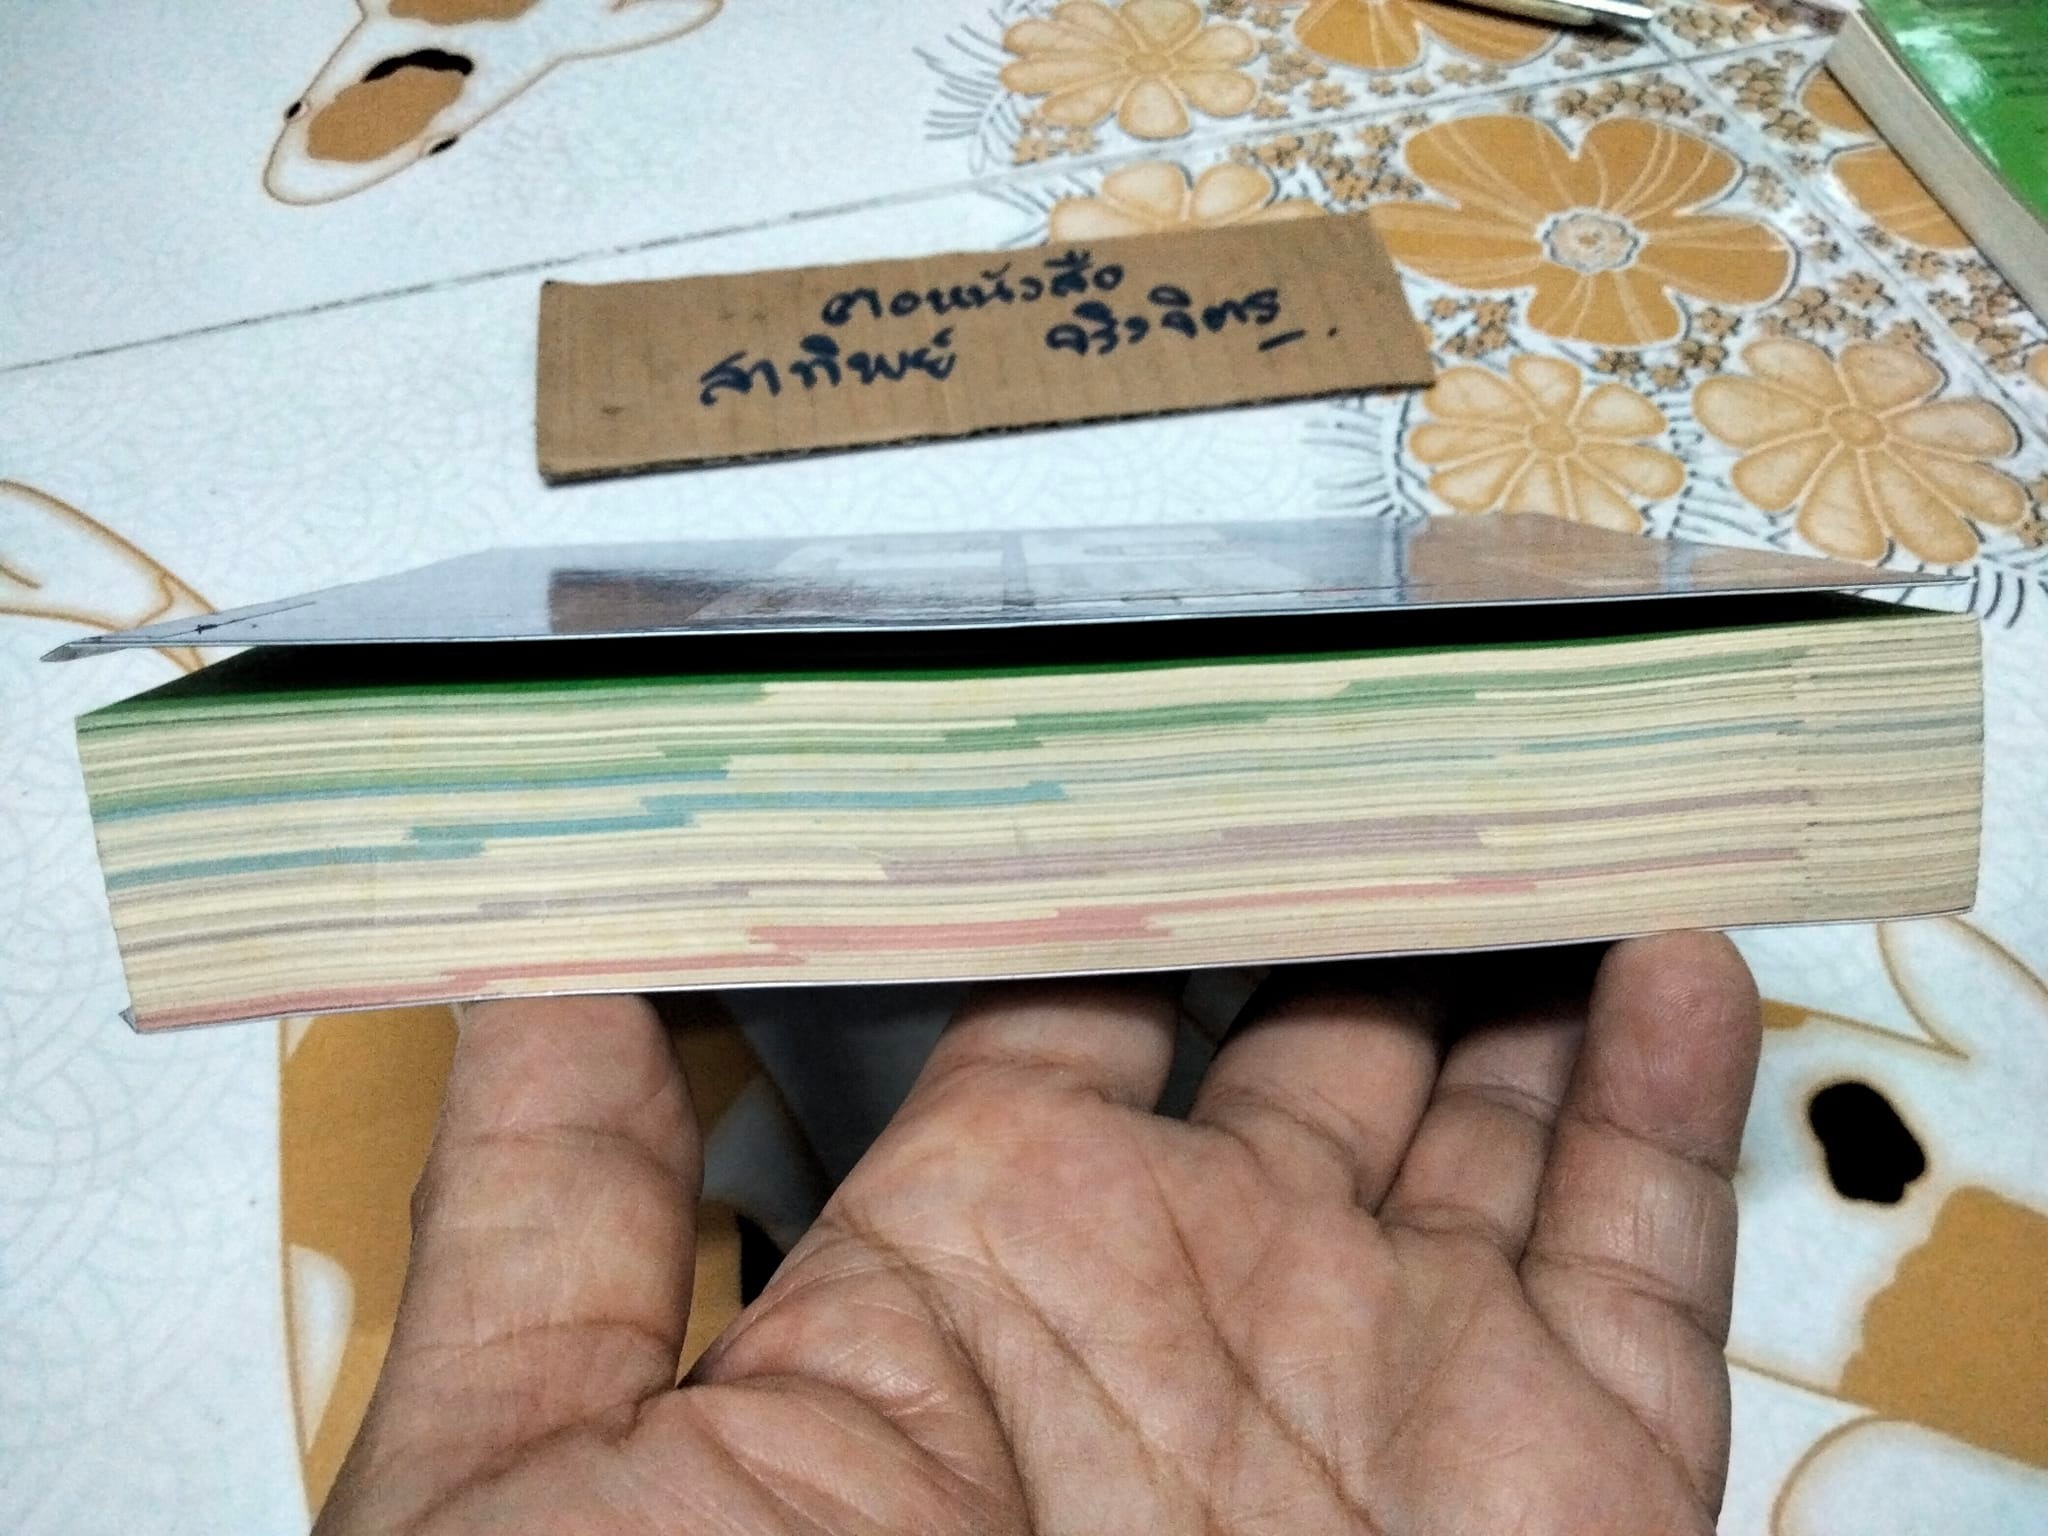 ตอหนังสือ
สาทิพย์ จริงจิตร